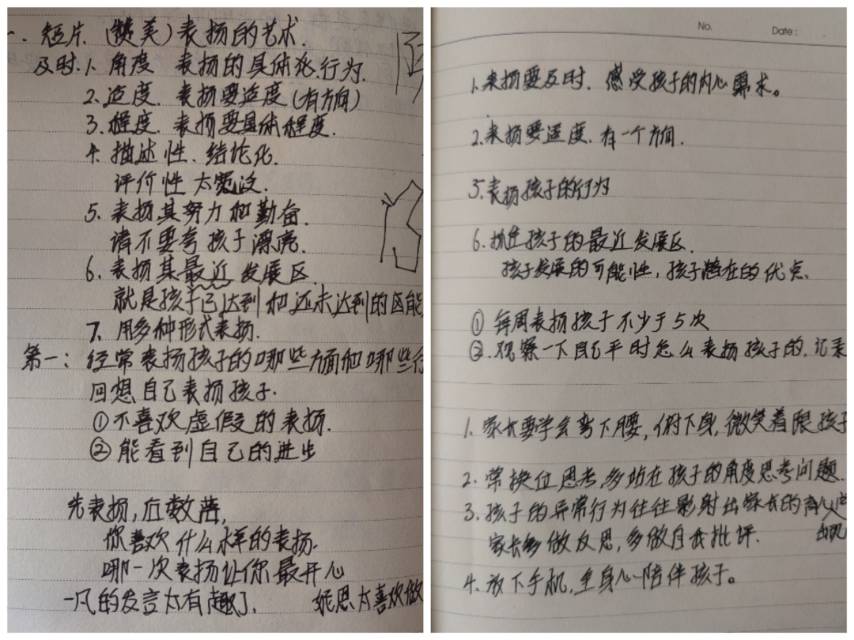 一. 短片. (赞美) 表扬的艺术.
及时. 1. 角度 表扬的具体化.行为.
2. 适度. 表扬要适度(有方向)
3. 程度. 表扬要具体程度.
4. 描述性. 结论化.
评价性 太宽泛.
5. 表扬其努力和勤奋.
请不要夸孩子漂亮.
6. 表扬其最近发展区.
就是孩子已达到和还未达到的区
7. 用多种形式表扬.
第一: 经常表扬孩子的哪些方面和哪些行
回想自己表扬孩子.
①不喜欢虚假的表扬.
②能看到自己的进步
先表扬,后数落,
你喜欢什么样的表扬.
哪一次表扬让你最开心
一凡的发言太有趣了. 妮恩太喜欢做
No. Date:
1.表扬要及时. 感受孩子的内心需求。
2.表扬要适度.有一个方向.
5.表扬孩子的行为
6.抓住孩子的最近发展区.
孩子发展的可能性,孩子潜在的优点.
① 每周表扬孩子不少于5次
②.观察一下自己平时怎么表扬孩子的.记录
1. 家长要学会弯下腰,俯下身,微笑着跟孩子
2. 常换位思考,多站在孩子的角度思考问题.
3. 孩子的异常行为往往影射出家长的
家长多做反思,多做自我批评.
4. 放下手机,全身心陪伴孩子。